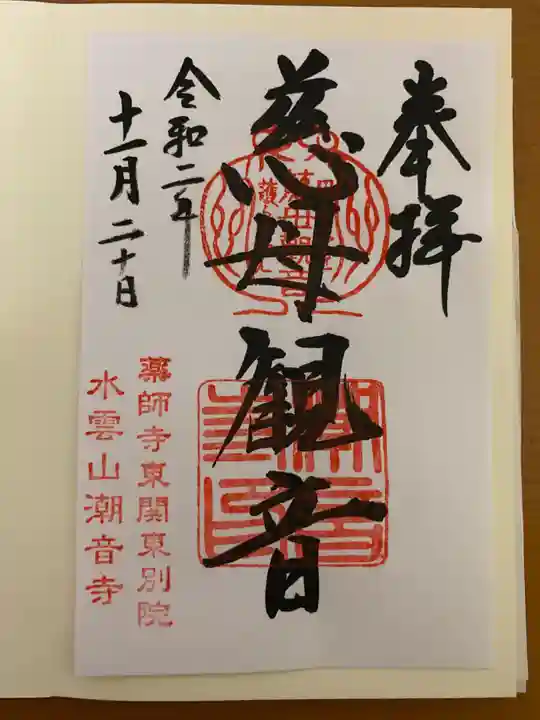 奉拝
慈母観音
令和二年
十一月二十日
薬師寺東関東別院
水雲山潮音寺